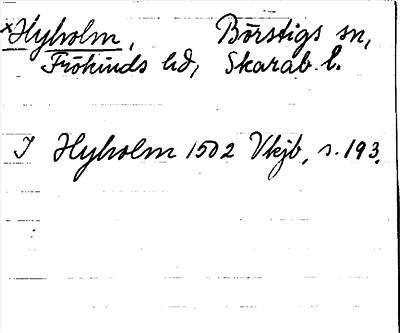 *Hyholm, Börstigs sn,
Frökinds hd, Skarab. l.
I Hyholm 1502 Vkjb, s. 193.